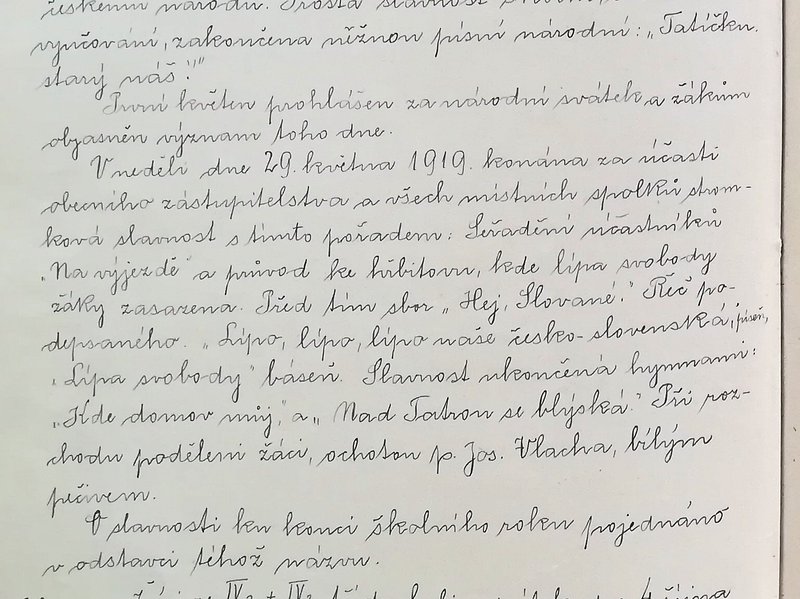 českému národu. Prostá slavnost
vyučování, zakončena něžnou písní národní: „Tatíčku
starý náš!"
První květen prohlášen za národní svátek a žákům
objasněn význam toho dne.
V neděli dne 29. května 1919. konána za účasti
obecního zástupitelstva a všech místních spolků strom-
ková slavnost s tímto pořadem: Seřadění účastníků
„Na výjezdě" a průvod ke hřbitovu, kde lípa svobody
žáky zasazena. Před tím sbor „Hej, Slované." Řeč po-
depsaného. „Lípo, lípo, lípo naše česko-slovenská," píseň,
„Lípa svobody" báseň. Slavnost ukončená hymnami:
„Kde domov můj," a „Nad Tatrou se blýská." Při roz-
chodu poděleni žáci, ochotou p. Jos. Vlacha, bílým
pečivem.
O slavnosti ku konci školního roku pojednáno
v odstavci téhož názvu.